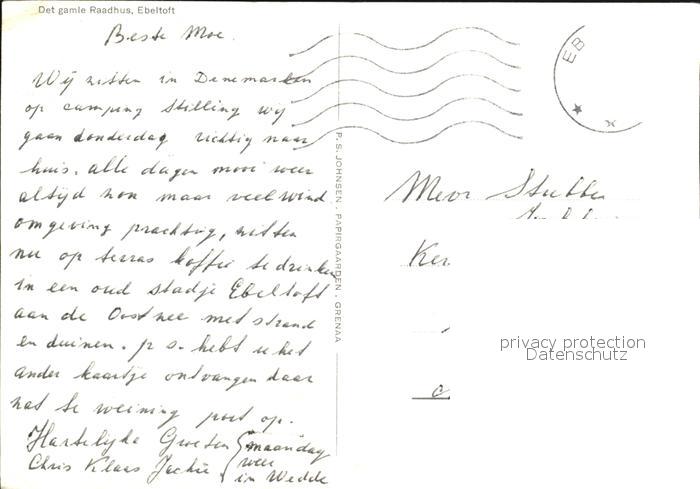 Det gamle Raadhus, Ebeltoft
Beste Moe.
Wij zitten in Denemarken
op camping Stilling wij
gaan donderdag richting naar
huis. alle dagen mooi weer
altijd zon maar veel wind
omgeving prachtig, zitten
nu op terras koffie te drinken
in een oud stadje Ebeltoft
aan de Oostzee met strand
en duinen. p s. hebt u het
ander kaartje ontvangen daar
zat te weining post op.
Hartelijke Groeten
Chris Klaas Jackie
maandag
weer
in Wedde
P. S. JOHNSEN . PAPIRGAARDEN . GRENAA
EB
Mevr Stubbe
Ker
privacy protection
Datenschutz